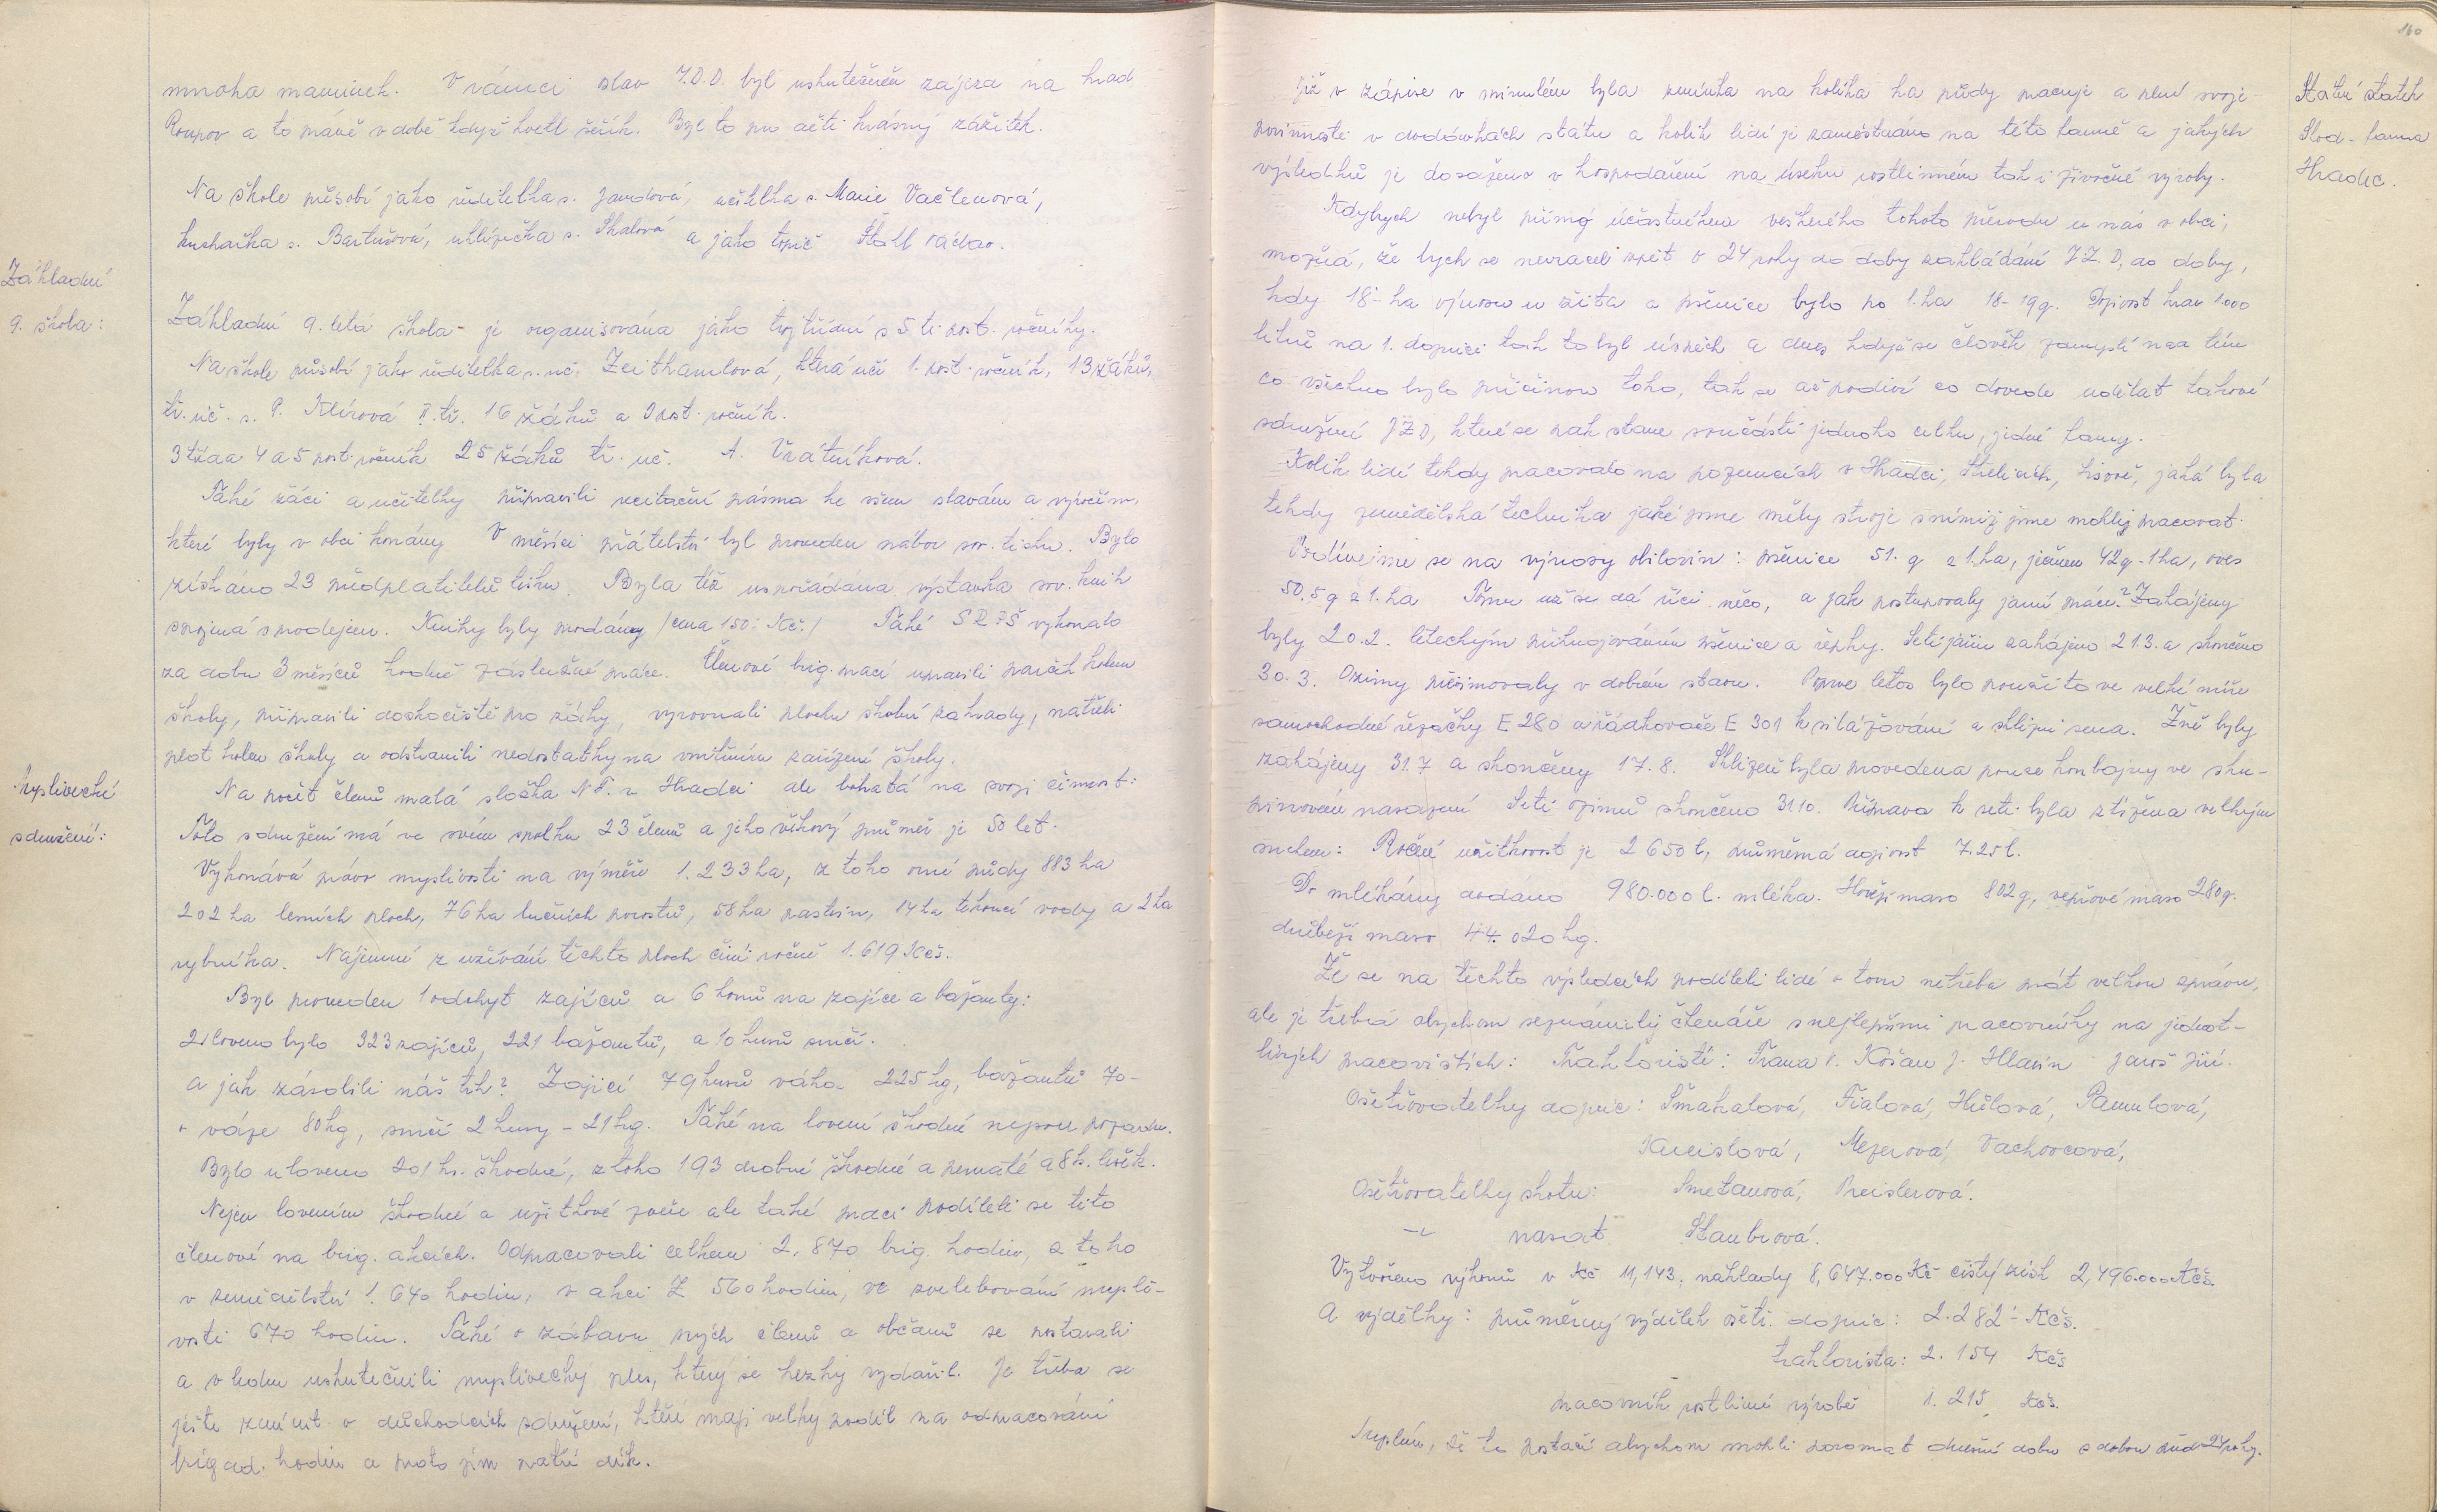 mnoha maminek. V rámci oslav M.D.D. byl uskutečněn zájezd na hrad
Roupov a to právě v době když kvetl šeřík. Byl to pro děti krásný zážitek.
Na škole působí jako ředitelka s. Jandová, učitelka s. Marie Vačlenová,
kuchařka s. Bartušová, uklízečka s. Skalová a jako topič Václav.
Základní
9. škola:
Základní 9. letá škola - je organisována jako trojtřídní s 5 ti post. ročníky.
Na škole působí jako ředitelka s. uč. Zeithamlová, která učí 1. post. ročník, 13 žáků,
tř. uč. s. P. Klírová II. tř. 16 žáků a 2 post. ročník.
3 třída 4 a 5 post. ročník 25 žáků tř. uč. A. Vrátníková.
Také žáci a učitelky připravili recitační pásma ke všem slavám a výročím,
které byly v obci konány V měsíci přátelství byl proveden nábor sov. tisku. Bylo
získáno 23 předplatitelů tisku. Byla též uspořádána výstavka sov. knih
spojená s prodejem. Knihy byly prodány /cena 150.- Kč./ Také SRPŠ vykonalo
za dobu 3 měsíců hodně záslužné práce. Členové brig. prací upravili parčík kolem
školy, připravili doskočiště pro žáky, vyrovnali plochu školní zahrady, natřeli
plot kolem školy a odstranili nedostatky na vnitřním zařízení školy.
Myslivecké
sdružení:
Na počet členů malá složka N.F. v Hradci ale bohatá na svoji činnost:
Toto sdružení má ve svém spolku 23 členů a jeho věkový průměr je 50 let.
Vykonává právo myslivosti na výměře 1.233 ha, z toho orné půdy 883 ha
202 ha lesních ploch, 76 ha lučních porostů, 58 ha pastvin, 14 ha tekoucí vody a 2 ha
rybníka. Nájemné z užívání těchto ploch činí ročně 1.619 Kčs.
Byl proveden 1 odchyt zajíců a 6 honů na zajíce a bažanty:
Uloveno bylo 323 zajíců, 221 bažantů, a 10 kusů srnčí.
a jak zásobili náš trh? Zajíci 79 kusů váha 225 kg, bažantů 70 -
o váze 80 kg, srnčí 2 kusy - 21 kg. Také na lovení škodné nejsou pozadu.
Bylo uloveno 201 ks. škodné, z toho 193 drobné škodné a pernaté a 8 k. lišek.
Nejen lovením škodné a užitkové zvěře ale také prací podíleli se tito
členové na brig. akcích. Odpracovali celkem 2.870 brig. hodin, z toho
v zemědělství 1.640 hodin, v akci Z 560 hodin, ve zvelebování mysli-
vosti 670 hodin. Také o zábavu svých členů a občanů se postarali
a v lednu uskutečnili myslivecký ples, který se hezky vydařil. Je třeba se
ještě zmínit o důchodcích sdružení, kteří mají velký podíl na odpracování
brigad. hodin a proto jim patří dík.
160
Státní statek
Hradec.
Již v zápise v minulém byla zmínka na kolika ha půdy pracuje a plní svoje
povinnosti v dodávkách státu a kolik lidí je zaměstnáno na této farmě a jakých
výsledků je dosaženo v hospodaření na úseku rostlinném tak i živočišné výroby.
Kdybych nebyl přímý účastníkem veškerého tohoto převodu u nás v obci,
možná, že bych se nevracel zpět o 24 roky do doby zakládání J.Z.D, do doby,
kdy 18 - ha výnosu u žita a pšenice bylo po 1. ha 18 - 19 q. Dojivost krav 1.000
litrů na 1. dojnici tak to byl úspěch a dnes když se člověk zamyslí nad tím
co všechno bylo příčinou toho, tak se až podiví co dovede udělat takové
sdružení JZD, které se pak stane součástí jednoho celku, jedné farmy.
Kolik lidí tehdy pracovalo na pozemcích v Hradci, Střelicích, Lisově, jaká byla
tehdy zemědělská technika jaké jsme měly stroje s nimiž jsme mohly pracovat.
Podívejme se na výnosy obilovin: pšenice 51. q z 1. ha, ječmen 42 q - 1 ha, oves
50,5 q z 1. ha Tomu už se dá říci něco, a jak postupovaly jarní práce? Zahájeny
byly 20.2. leteckým přihnojováním pšenice a řepky. Setí jařin zahájeno 21.3. a skončeno
30.3. Ozimy přezimovaly v dobrém stavu. Poprvé letos bylo použito ve velké míře
samochodné řezačky E 280 a řádkovače E 301 k silážování a sklizni sena. Žně byly
zahájeny 31.7 a skončeny 17.8. Sklizeň byla provedena pouze kombajny ve sku-
pinovém nasazení Setí ozimů skončeno 31.10. Příprava k setí byla ztížena velkým
suchem: Roční užitkovost je 2650 l, průměrná dojivost 7.25 l.
Do mlékárny dodáno 980.000 l. mléka. Hovězí maso 802 q, vepřové maso 280 q.
drůbeží maso 44.020 kg.
Že se na těchto výsledcích podíleli lidé o tom netřeba psát velkou zprávu,
ale je třeba abychom seznámily čtenáře s nejlepšími pracovníky na jednot-
livých pracovištích: Traktoristi: Trana V. Košan J. Hlavín Jaroš Jiří.
Ošetřovatelky dojnic: Smahalová, Fialová, Hůlová, Pamulová,
Kneislová, Mezerová, Vachovcová,
Ošetřovatelky skotu: Smetanová, Preislerová.
-"- prasat Staubrová.
Vytvořeno výkonů v Kč 11,143, náklady 8,647.000 Kč čistý zisk 2,496.000 Kčs.
A výdělky: průměrný výdělek ošetř. dojnic: 2.282 - Kčs.
traktorista: 2.154 Kčs
pracovník rostlinné výrobě 1.215 Kčs.
Myslím, že to postačí abychom mohli porovnat dnešní dobu s dobou před 24 roky.